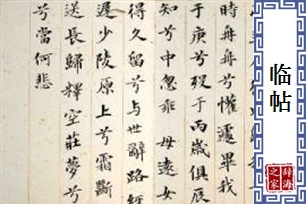 时冉冉兮懽遽畢我
于庚兮殁于丙歲俱辰
知兮中忽乖 母遠女
得久留兮与世辭路經
遲少陵原上兮霜斷
送長歸釋空莊夢兮
兮當何悲
临帖
辞海之家